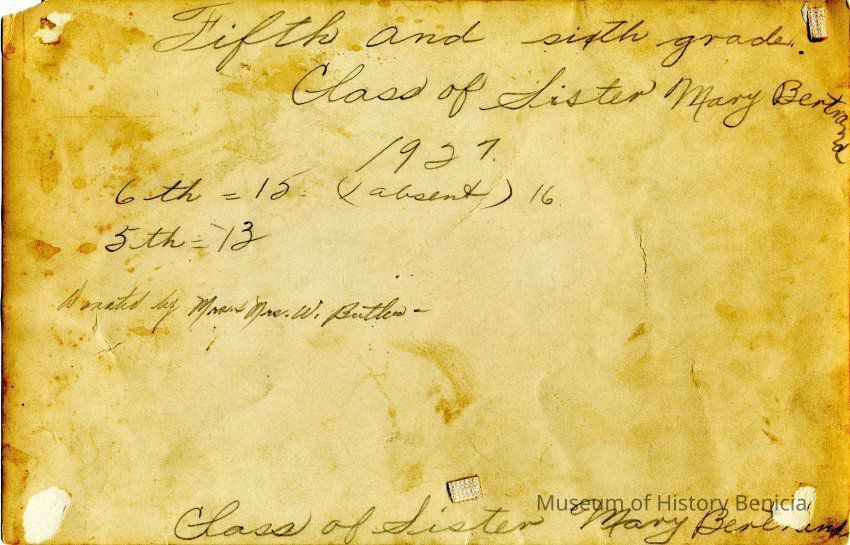 Fifth and sixth grade.
Class of Sister Mary Bertrand
1927.
6 th = 15. (1 absent) 16
5 th = 13
Donated by Mrs. W. Butler -
Class of Sister Mary Bertrand
Museum of History Benicia